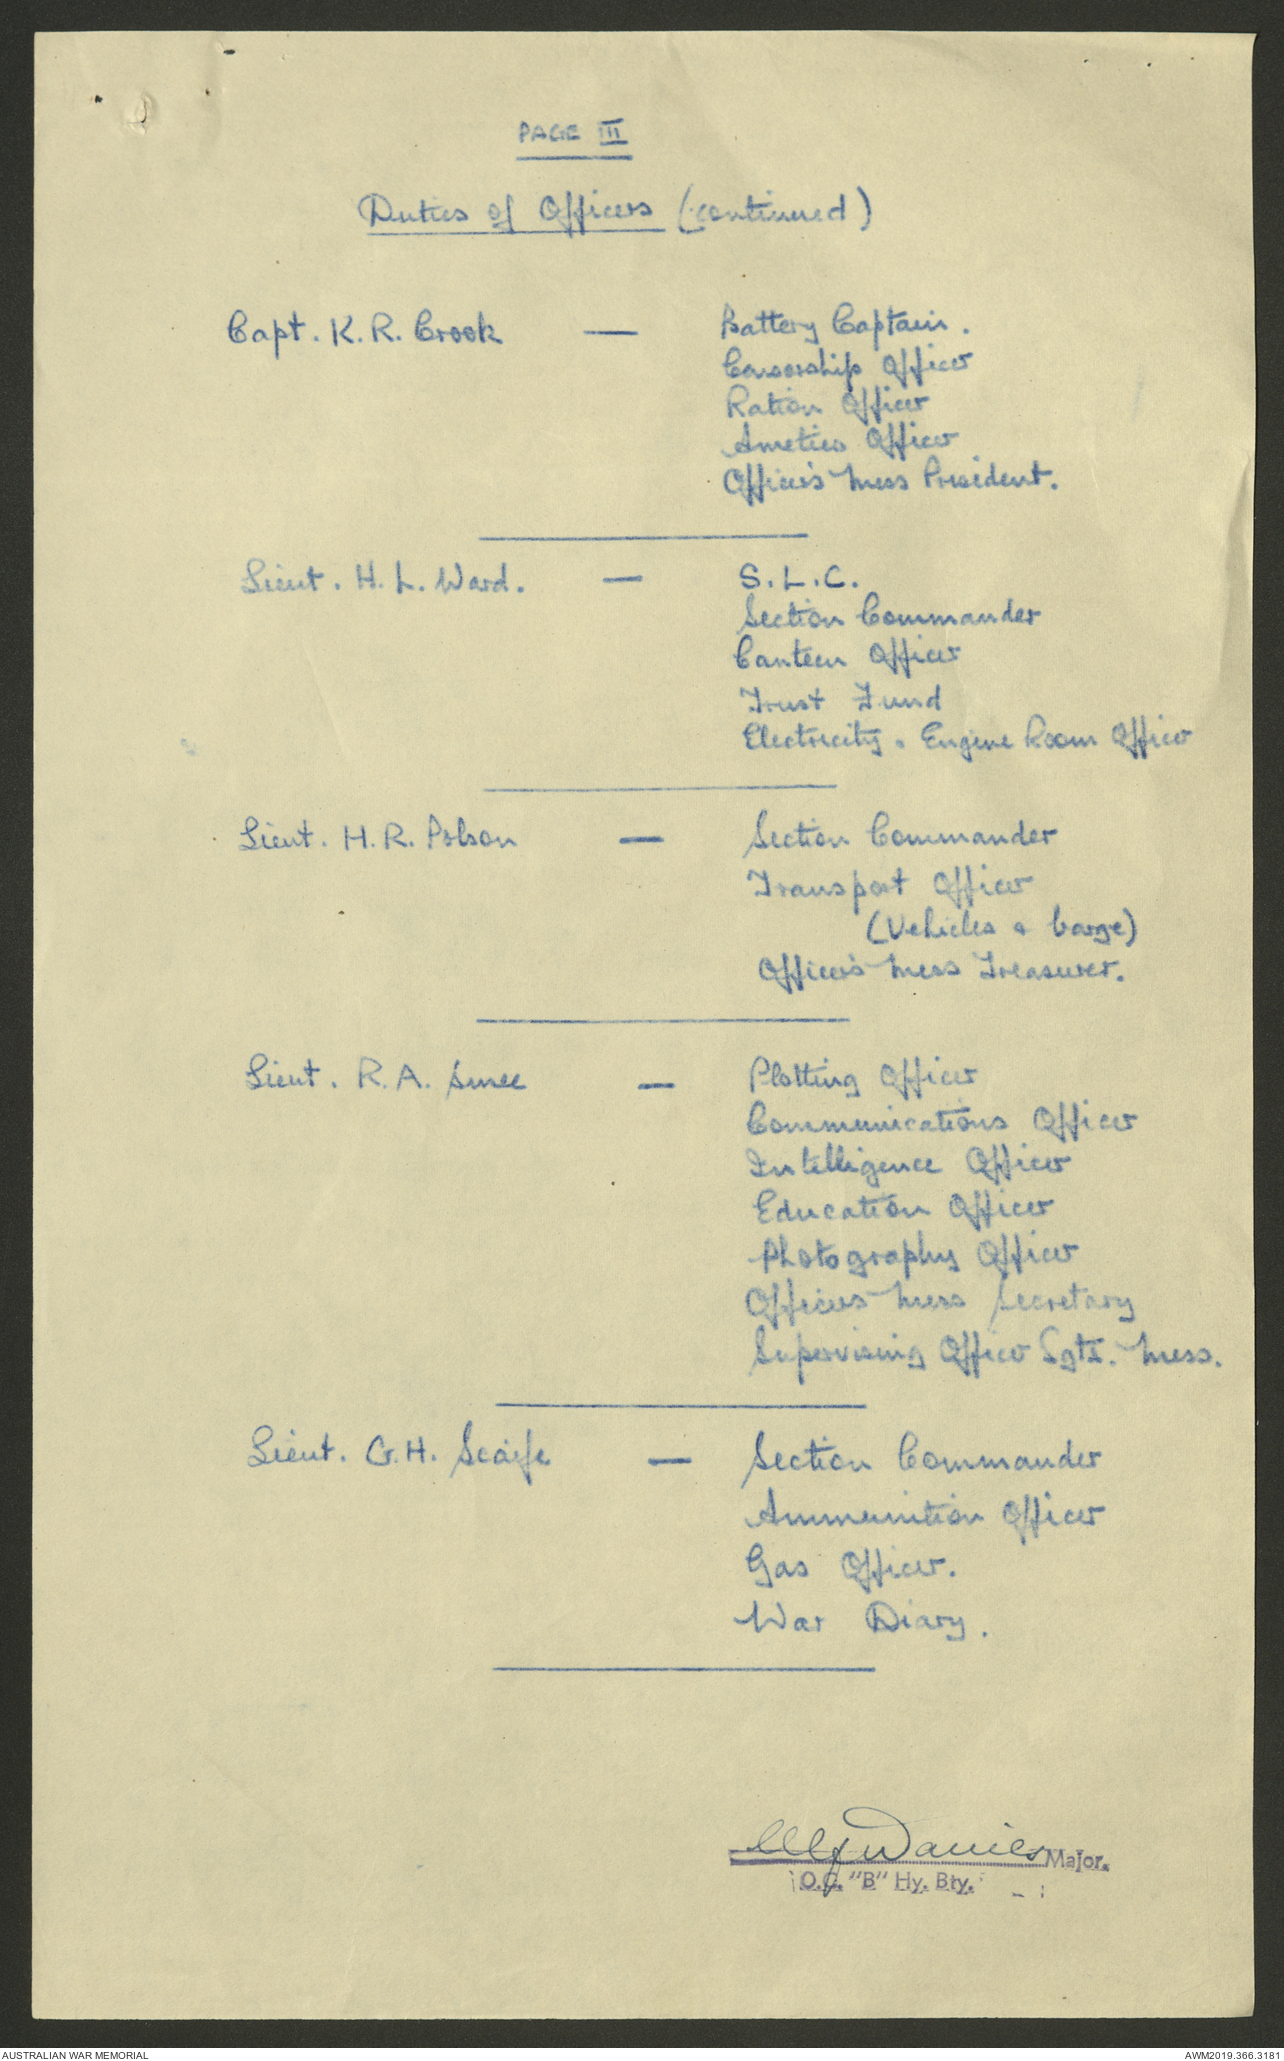 PAGE III
Duties of Officers (continued)
Capt. K. R. Crook — Battery Captain.
Censorship Officer
Ration Officer
Ameties Officer
Officer's Mess President.
Lieut. H. L. Ward. — S. L. C.
Section Commander
Canteen Officer
Trust Fund
Electricity & Engine Room Officer
Lieut. H. R. Polson — Section Commander
Transport Officer
(Vehicles & barge)
Officer's Mess Treasurer.
Lieut. R. A. Smee — Plotting Officer
Communications Officer
Intelligence Officer
Education Officer
Photography Officer
Officers Mess Secretary
Supervising Officer Sgts. Mess.
Lieut. G. H. Scaife — Section Commander
Ammunition Officer
Gas Officer.
War Diary.
Davies Major.
O.C. "B" Hy. Bty.
AUSTRALIAN WAR MEMORIAL
AWM2019.366.3181